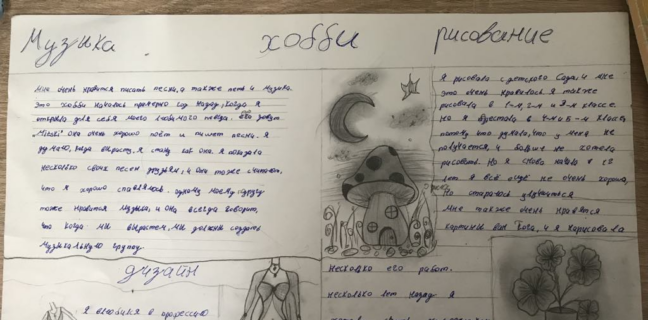 Музыка
хобби
рисование
Мне очень нравится писать песни, а также петь и музыка.
Это хобби началось примерно год назад, когда я
открыла для себя моего любимого певца. его зовут
она очень хорошо поёт и пишет песни. Я
думаю, когда вырасту, я стану как она. Я показала
несколько своих песен друзьям, и они тоже считают,
что я хорошо справляюсь. одному моему другу
тоже нравится музыка, и она всегда говорит,
что когда мы вырастем, мы должны создать
музыкальную группу.
Я рисовала с детского сада, и мне
это очень нравилось я также
рисовала в 1-м, 2-м и 3-м классе.
Но я бросила в 4-м и 5-м классе,
потому что думала, что у меня не
получается, и больше не хотела
рисовать. Но я снова начала в
лет Я всё ещё не очень хороша,
Но стараюсь улучшиться
Мне также очень нравятся
картины Ван Гога, и я нарисовала
несколько его работ.
несколько лет назад я
дизайн
Я влюбился в профессию